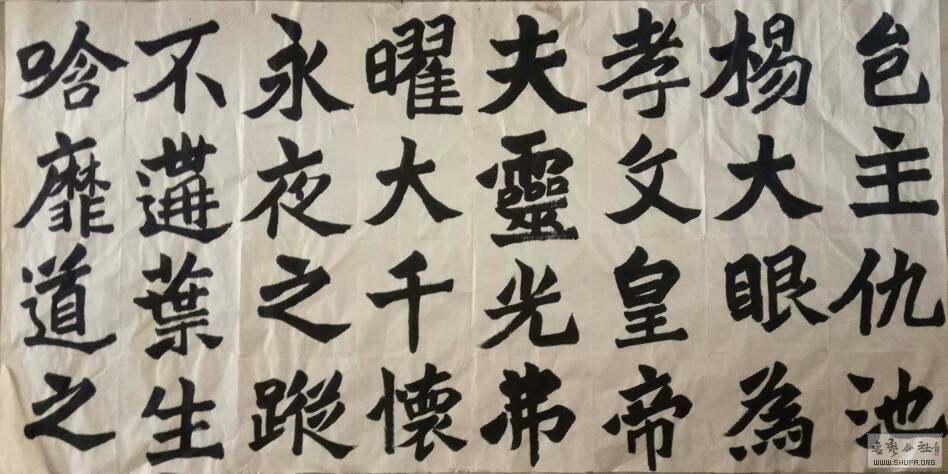 邑主仇池
楊大眼為
孝文皇帝
夫靈光弗
曜大千懷
永夜之蹤
不遘葉生
唅靡道之
书艺公社
WWW.SHUFA.ORG